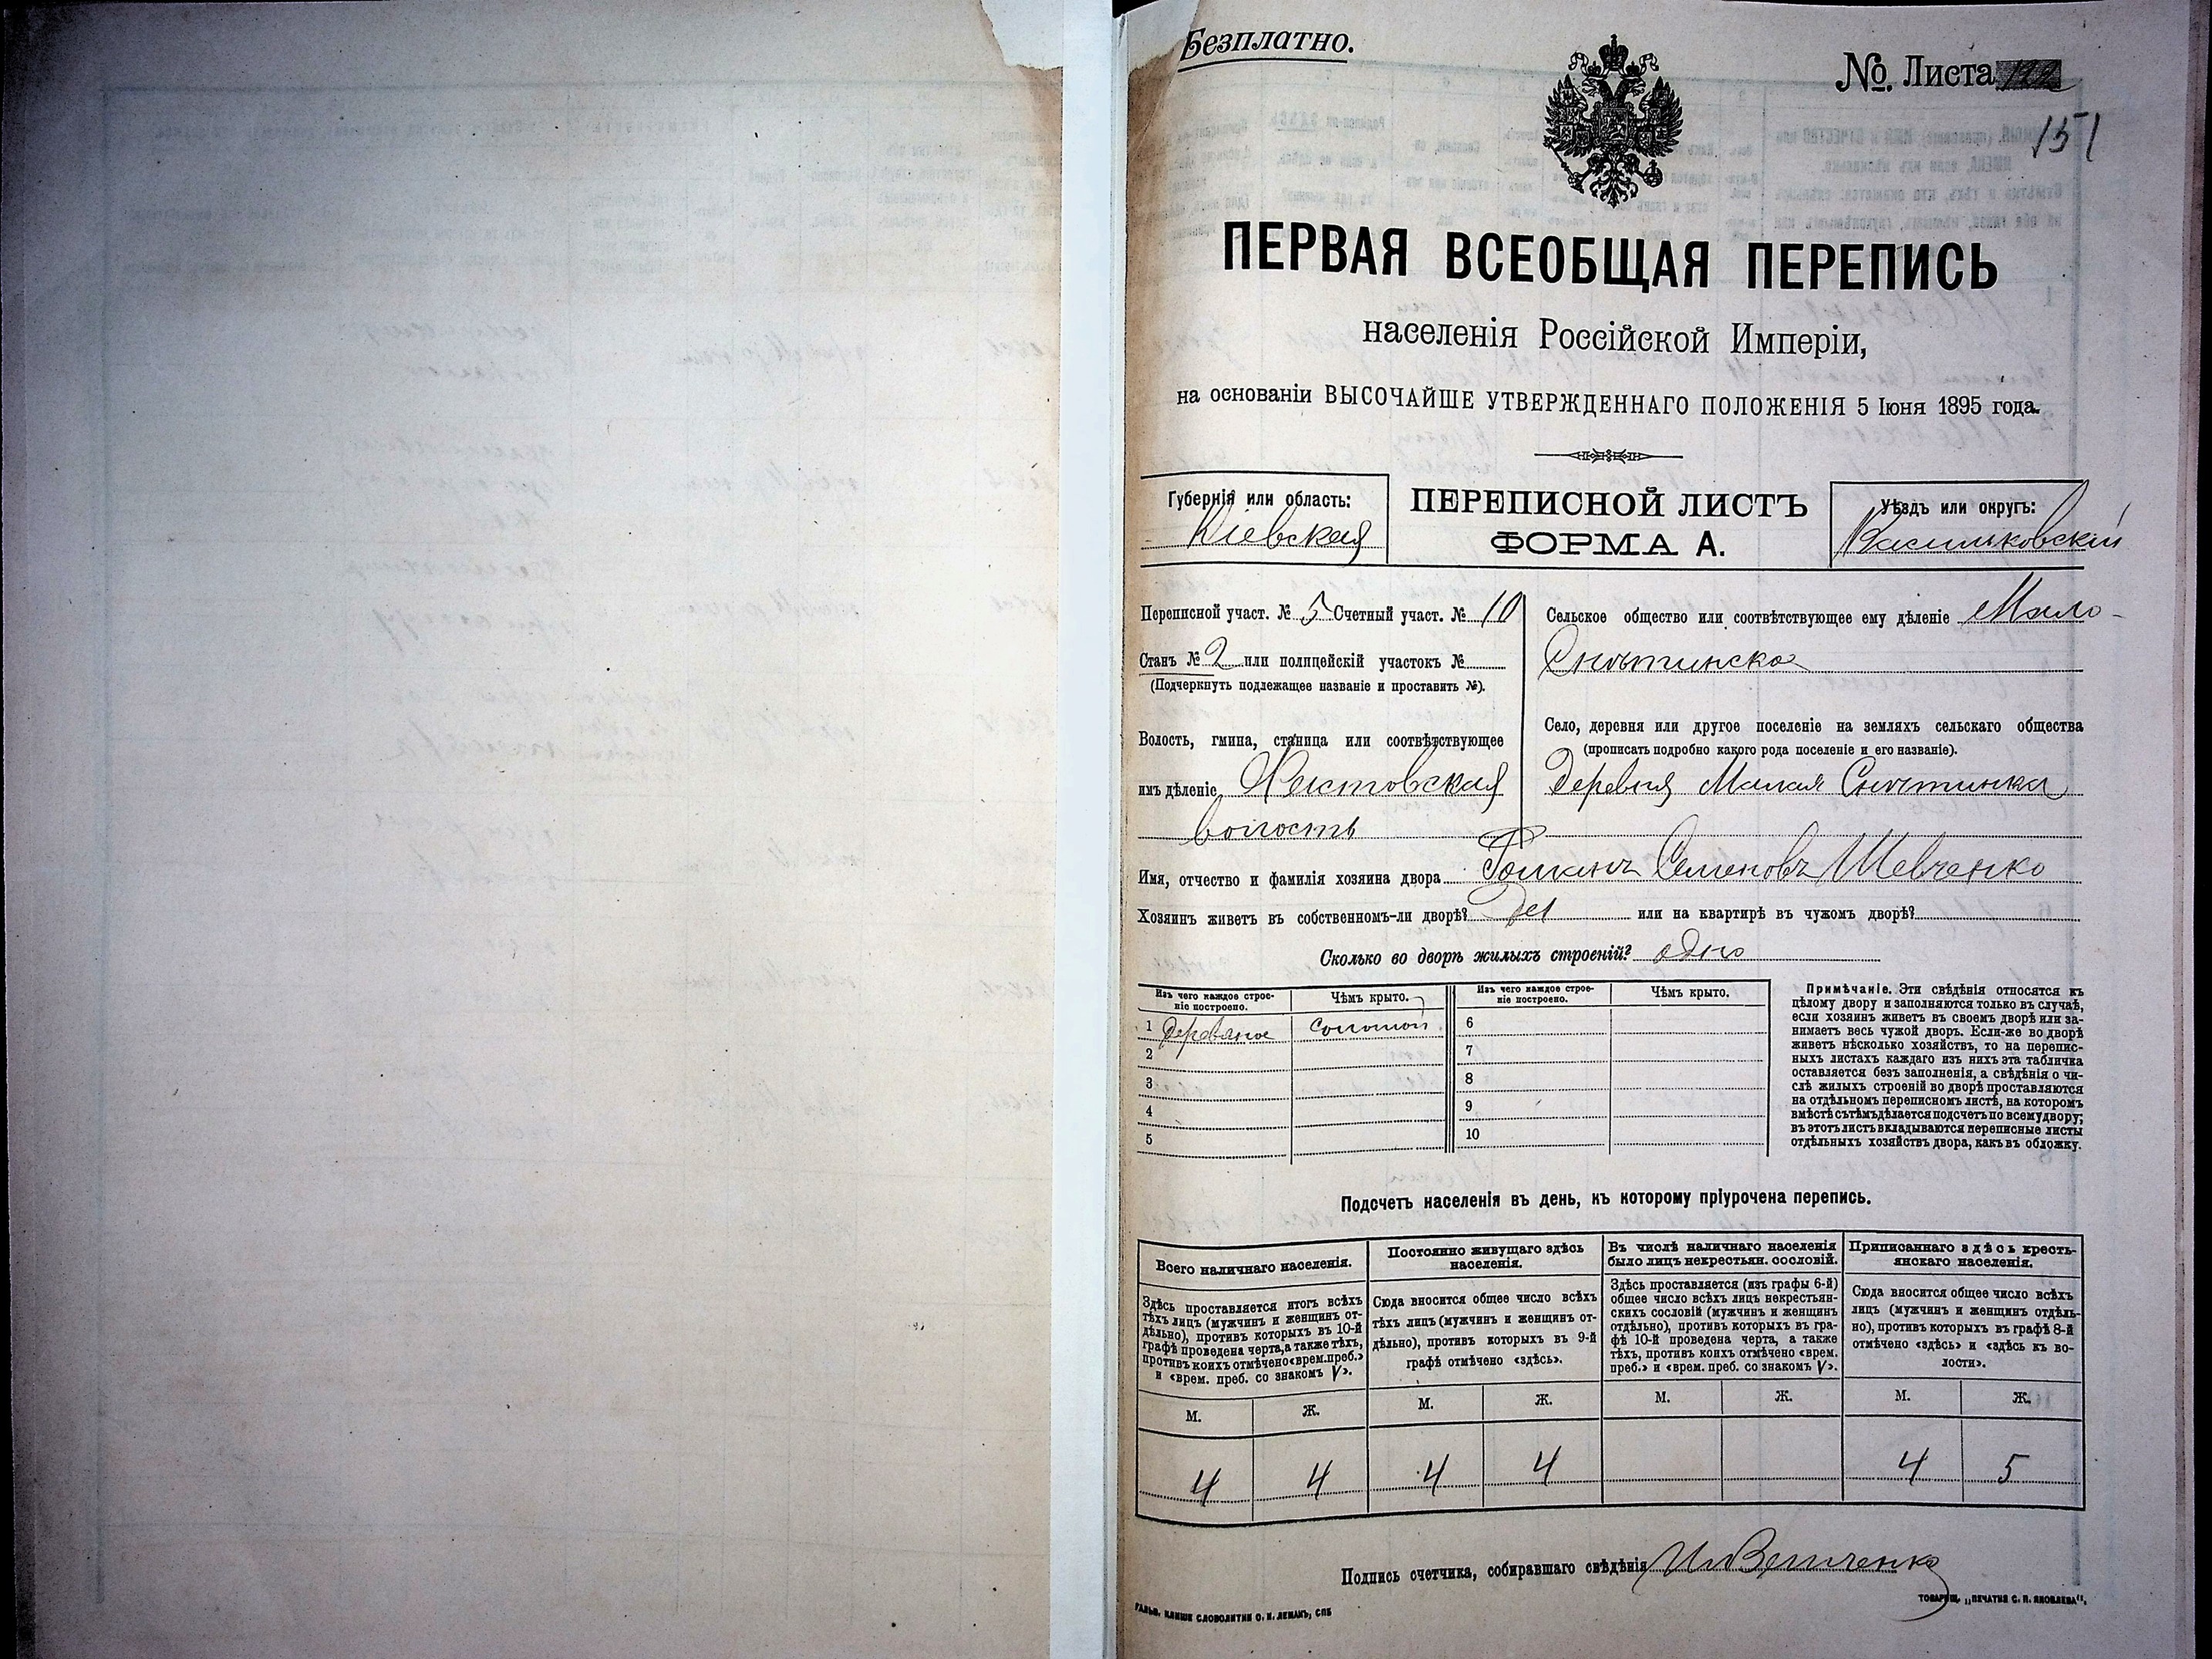 Безплатно.
№ Листа
151
ПЕРВАЯ ВСЕОБЩАЯ ПЕРЕПИСЬ
населенія Россійской Имперіи,
на основаніи ВЫСОЧАЙШЕ УТВЕРЖДЕННАГО ПОЛОЖЕНІЯ 5 Іюня 1895 года.
Губернія или область:
Кіевская
ПЕРЕПИСНОЙ ЛИСТЪ
ФОРМА А.
Уѣздъ или округъ:
Васильковскій
Переписной участ. № 5 Счетный участ. № 10
Станъ № 2 или полицейскій участокъ №
(Подчеркнуть подлежащее названіе и проставить №).
Волость, гмина, станица или соотвѣтствующее
имъ дѣленіе
волость
Сельское общество или соотвѣтствующее ему дѣленіе Мало-
Снѣтинское
Село, деревня или другое поселеніе на земляхъ сельскаго общества
(прописать подробно какого рода поселеніе и его названіе).
Деревня Малая Снѣтинка
Имя, отчество и фамилія хозяина двора Романъ Семеновъ Шевченко
Хозяинъ живетъ въ собственномъ-ли дворѣ? Да или на квартирѣ въ чужомъ дворѣ?
Сколько во дворѣ жилыхъ строеній? одно
Изъ чего каждое строе-
ніе построено.
Чѣмъ крыто.
1 Деревяное Соломой
2
3
4
5
Изъ чего каждое строе-
ніе построено.
Чѣмъ крыто.
6
7
8
9
10
Примѣчаніе. Эти свѣдѣнія относятся къ
цѣлому двору и заполняются только въ случаѣ,
если хозяинъ живетъ въ своемъ дворѣ или за-
нимаетъ весь чужой дворъ. Если-же во дворѣ
живетъ нѣсколько хозяйствъ, то на перепис-
ныхъ листахъ каждаго изъ нихъ эта табличка
оставляется безъ заполненія, а свѣдѣнія о чи-
слѣ жилыхъ строеній во дворѣ проставляются
на отдѣльномъ переписномъ листѣ, на которомъ
вмѣстѣ съ тѣмъ дѣлается подсчетъ по всему двору;
въ этотъ листъ вкладываются переписные листы
отдѣльныхъ хозяйствъ двора, какъ въ обложку.
Подсчетъ населенія въ день, къ которому пріурочена перепись.
Всего наличнаго населенія.
Здѣсь проставляется итогъ всѣхъ
тѣхъ лицъ (мужчинъ и женщинъ от-
дѣльно), противъ которыхъ въ 10-й
графѣ проведена черта, а также тѣхъ,
противъ коихъ отмѣчено «врем. преб.»
и «врем. преб. со знакомъ V».
М. Ж.
4 4
Постоянно живущаго здѣсь
населенія.
Сюда вносится общее число всѣхъ
тѣхъ лицъ (мужчинъ и женщинъ от-
дѣльно), противъ которыхъ въ 9-й
графѣ отмѣчено «здѣсь».
М. Ж.
4 4
Въ числѣ наличнаго населенія
было лицъ некрестьян. сословій.
Здѣсь проставляется (изъ графы 6-й)
общее число всѣхъ лицъ некрестьян-
скихъ сословій (мужчинъ и женщинъ
отдѣльно), противъ которыхъ въ гра-
фѣ 10-й проведена черта, а также
тѣхъ, противъ коихъ отмѣчено «врем.
преб.» и «врем. преб. со знакомъ V».
М. Ж.
Приписаннаго здѣсь кресть-
янскаго населенія.
Сюда вносится общее число всѣхъ
лицъ (мужчинъ и женщинъ отдѣль-
но), противъ которыхъ въ графѣ 8-й
отмѣчено «здѣсь» и «здѣсь къ во-
лости».
М. Ж.
4 5
Подпись счетчика, собиравшаго свѣдѣнія
ГАЛЬВ. КЛИШЕ СЛОВОЛИТНИ О. И. ЛЕМАНЪ, СПБ
ТОВАРИЩ. „ПЕЧАТНЯ С. П. ЯКОВЛЕВА“.